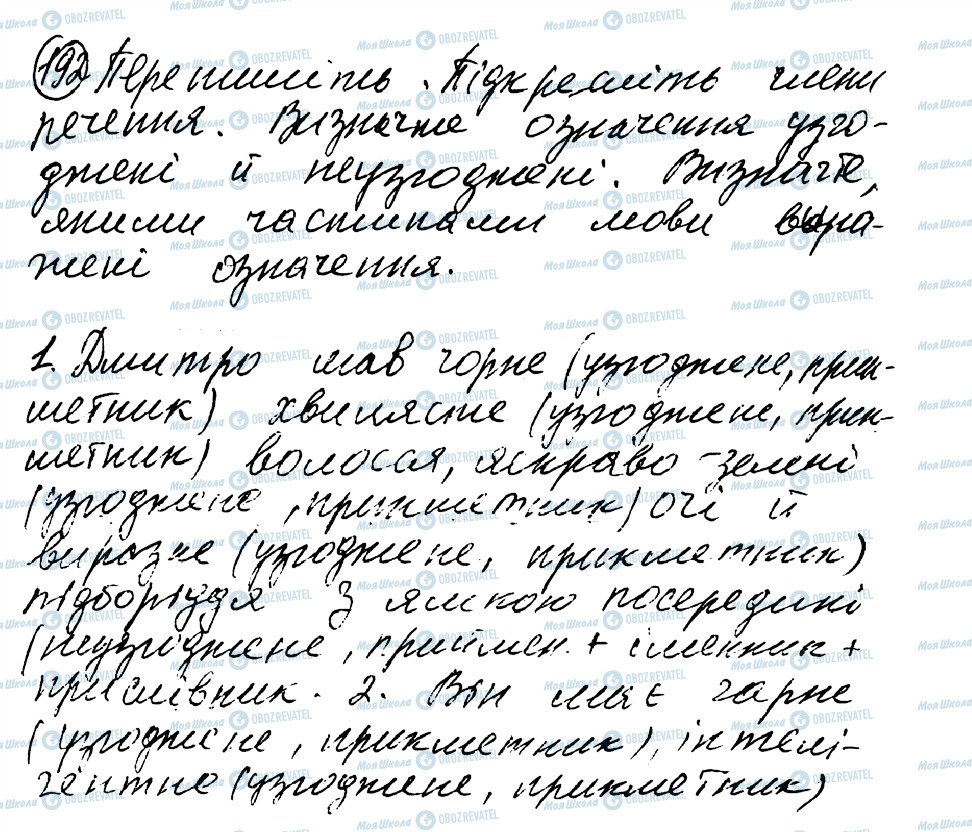 192 Перепишіть. Підкресліть члени
речення. Визначне означення узго-
джені й неузгоджені. Визначте,
якими частинами мови выра-
жені означення.
1. Дмитро мав чорне (узгоджене, прик-
метник) хвилясте (узгоджене, прик-
метник) волосся, яскраво-зелені
(узгоджене, прикметник) очі й
виразне (узгоджене, прикметник)
підборіддя з ямкою посередині
(неузгоджене, приймен. + іменник +
прислівник. 2. Він має гарне
(узгоджене, прикметник), інтелі-
гентне (узгоджене, прикметник)